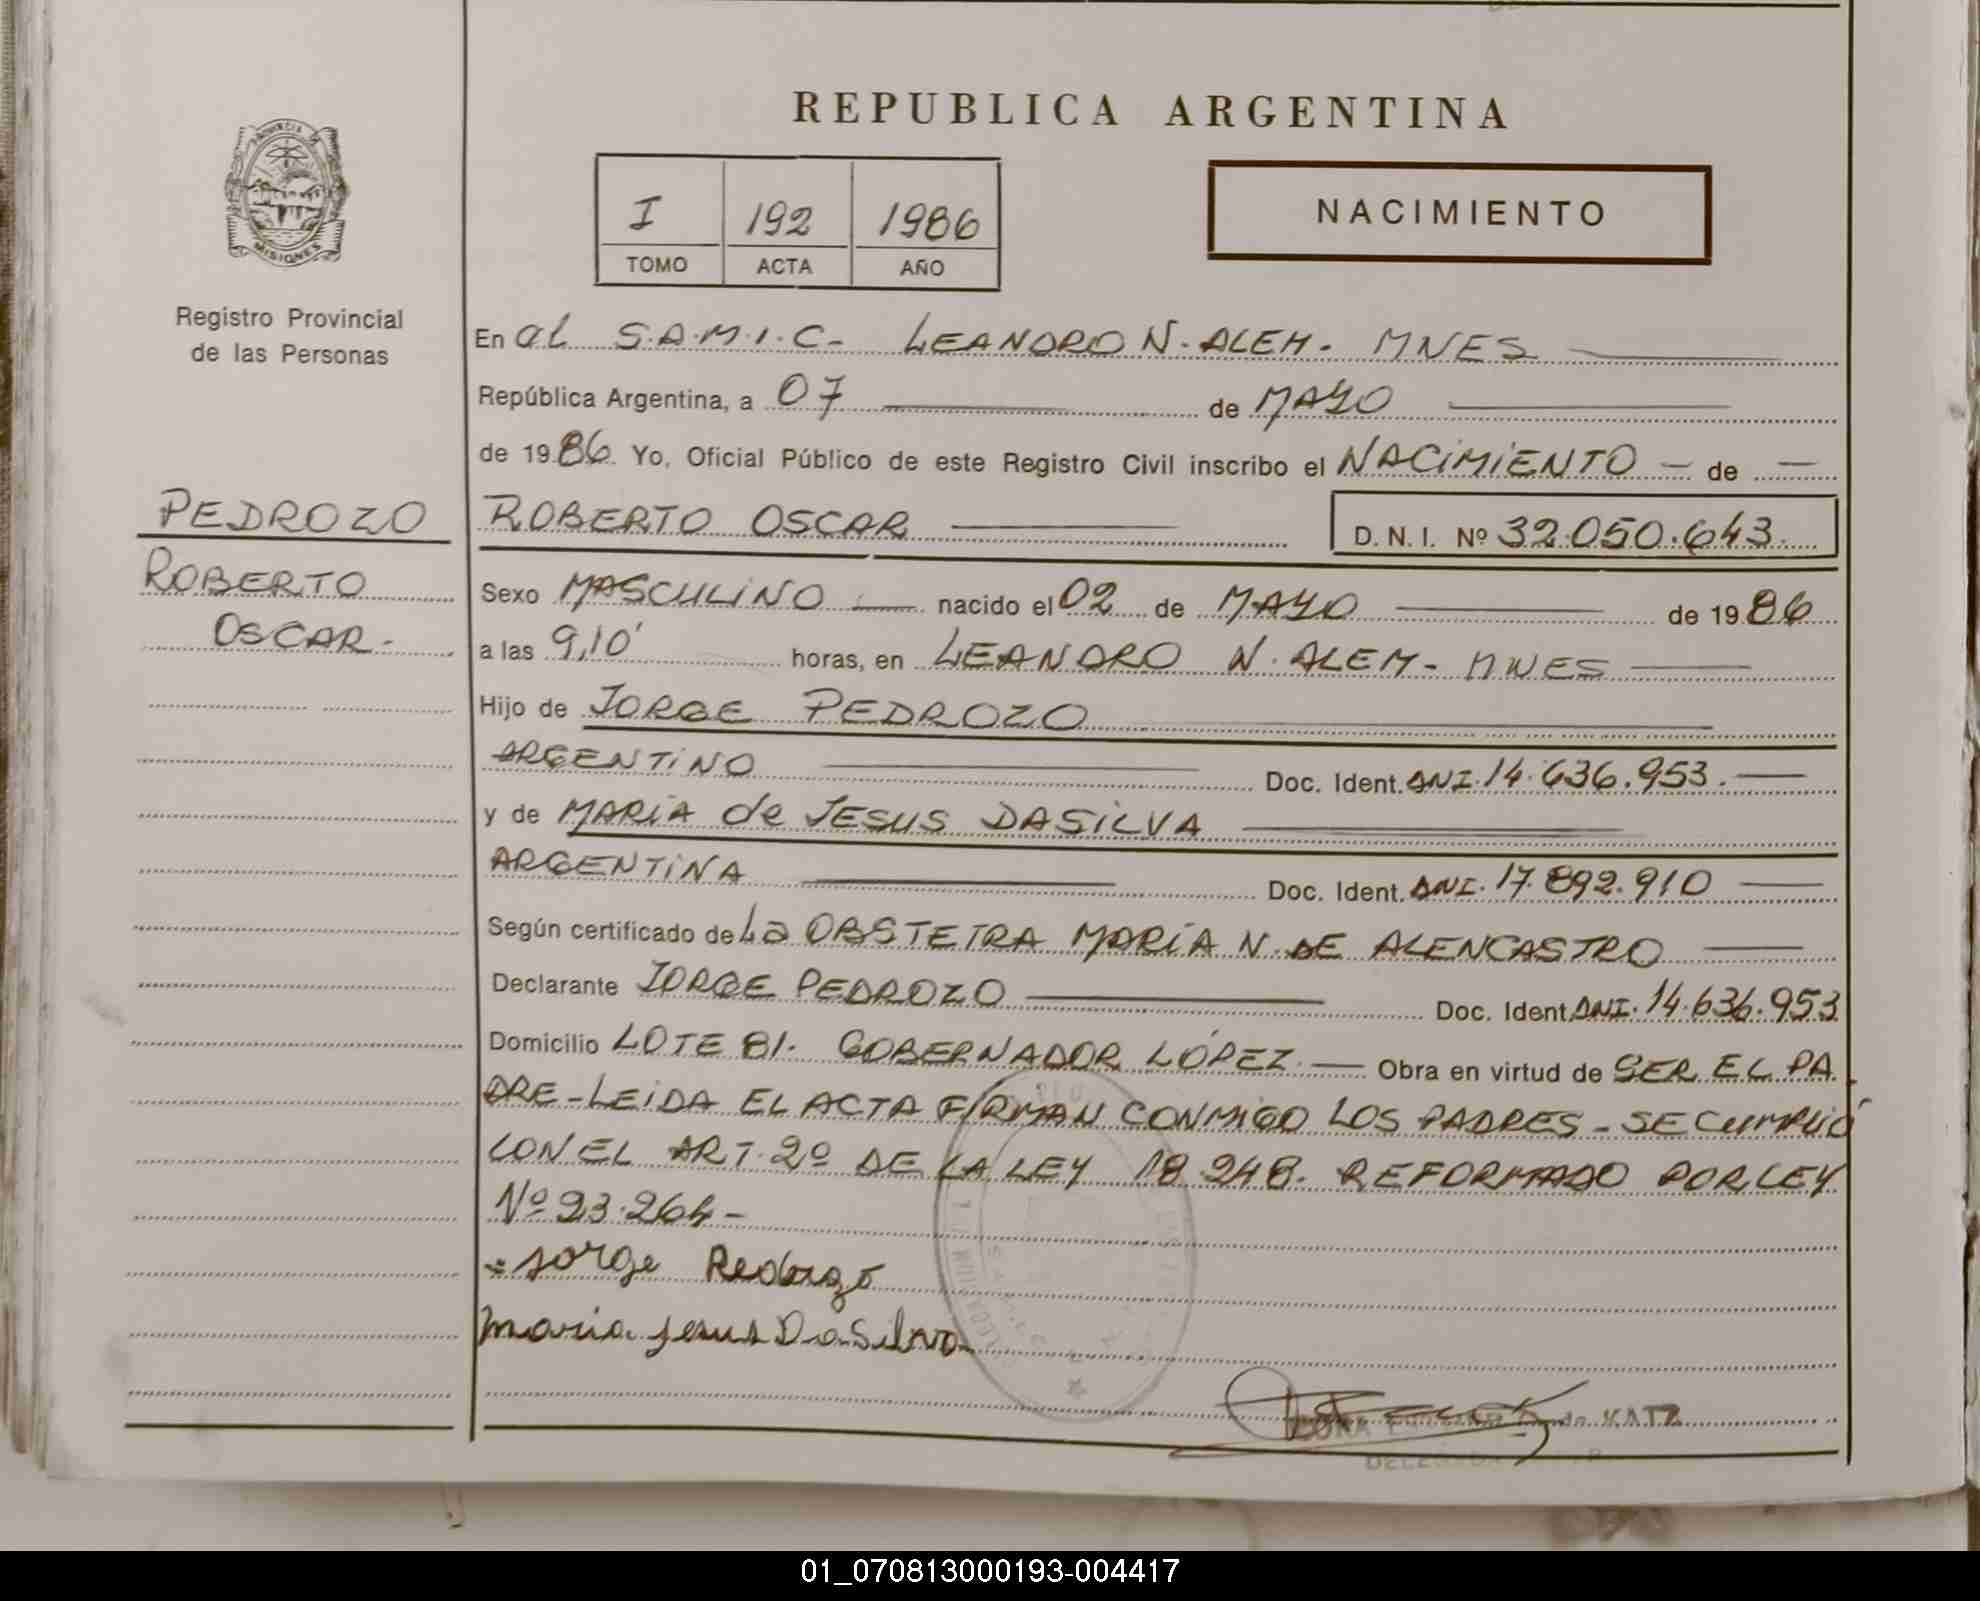 REPUBLICA ARGENTINA
PROVINCIA DE
MISIONES
I 192 1986
TOMO ACTA AÑO
NACIMIENTO
Registro Provincial
de las Personas
PEDROZO
ROBERTO
OSCAR-
En al S.A.M.I.C- LEANDRO N. ALEM- MNES
República Argentina, a 07 de MAYO
de 1986. Yo, Oficial Público de este Registro Civil inscribo el NACIMIENTO - de -
ROBERTO OSCAR D. N. I. Nº 32.050.643.
Sexo MASCULINO nacido el 02 de MAYO de 1986
a las 9,10' horas, en LEANDRO N. ALEM- MNES
Hijo de JORGE PEDROZO
ARGENTINO Doc. Ident. DNI. 14.636.953.
y de MARIA de JESUS DASILVA
ARGENTINA Doc. Ident. DNI. 17.892.910
Según certificado de La OBSTETRA MARIA N. DE ALENCASTRO
Declarante JORGE PEDROZO Doc. Ident. DNI. 14.636.953
Domicilio LOTE 81. GOBERNADOR LÓPEZ. Obra en virtud de SER EL PA
DRE-LEIDA EL ACTA FIRMAN CONMIGO LOS PADRES-SE CUMPLIÓ
CON EL ART. 2º DE LA LEY 18.248. REFORMADO POR LEY
Nº 23.264-
Jorge Pedrozo
Maria Jesus DaSilva
KATZ
01_070813000193-004417